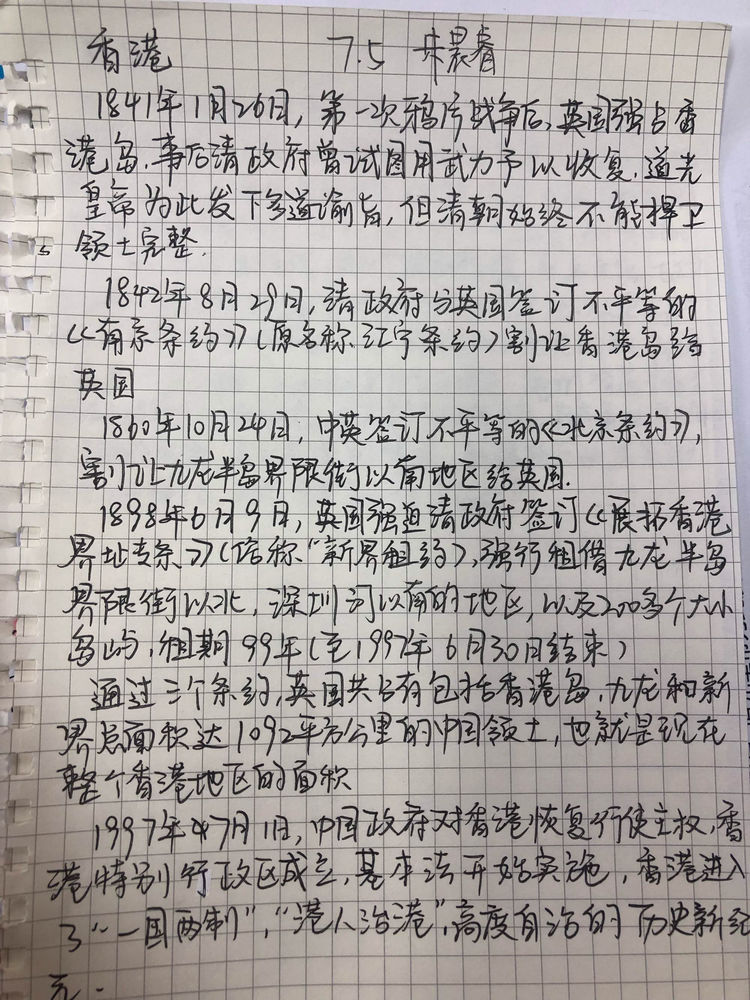 香港 7.5 井晨睿
1841年1月26日，第一次鸦片战争后，英国强占香
港岛，事后清政府曾试图用武力予以收复，道光
皇帝为此发下多道谕旨，但清朝始终不能捍卫
领土完整.
1842年8月29日，清政府与英国签订不平等的
《南京条约》（原名称江宁条约）割让香港岛给
英国
1860年10月24日，中英签订不平等的《北京条约》，
割让九龙半岛界限街以南地区给英国.
1898年6月9日，英国强迫清政府签订《展拓香港
界址专条》（俗称“新界租约），强行租借九龙半岛
界限街以北，深圳河以南的地区，以及200多个大小
岛屿，租期99年（至1997年6月30日结束）
通过三个条约，英国共占有包括香港岛，九龙和新
界总面积达1092平方公里的中国领土，也就是现在
整个香港地区的面积
1997年7月1日，中国政府对香港恢复行使主权，香
港特别行政区成立，基本法开始实施，香港进入
了“一国两制”，“港人治港”，高度自治的历史新纪
元.